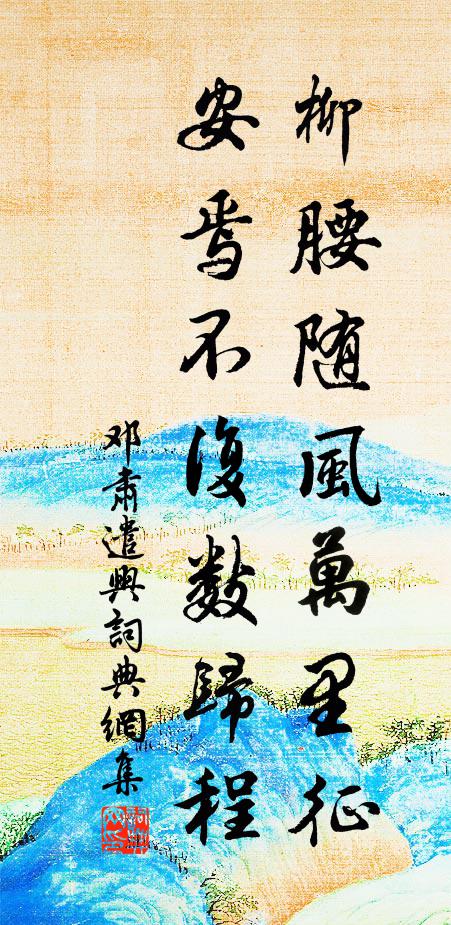 柳腰随風萬里征
安焉不復数歸程
邓肅遣興詞典網集